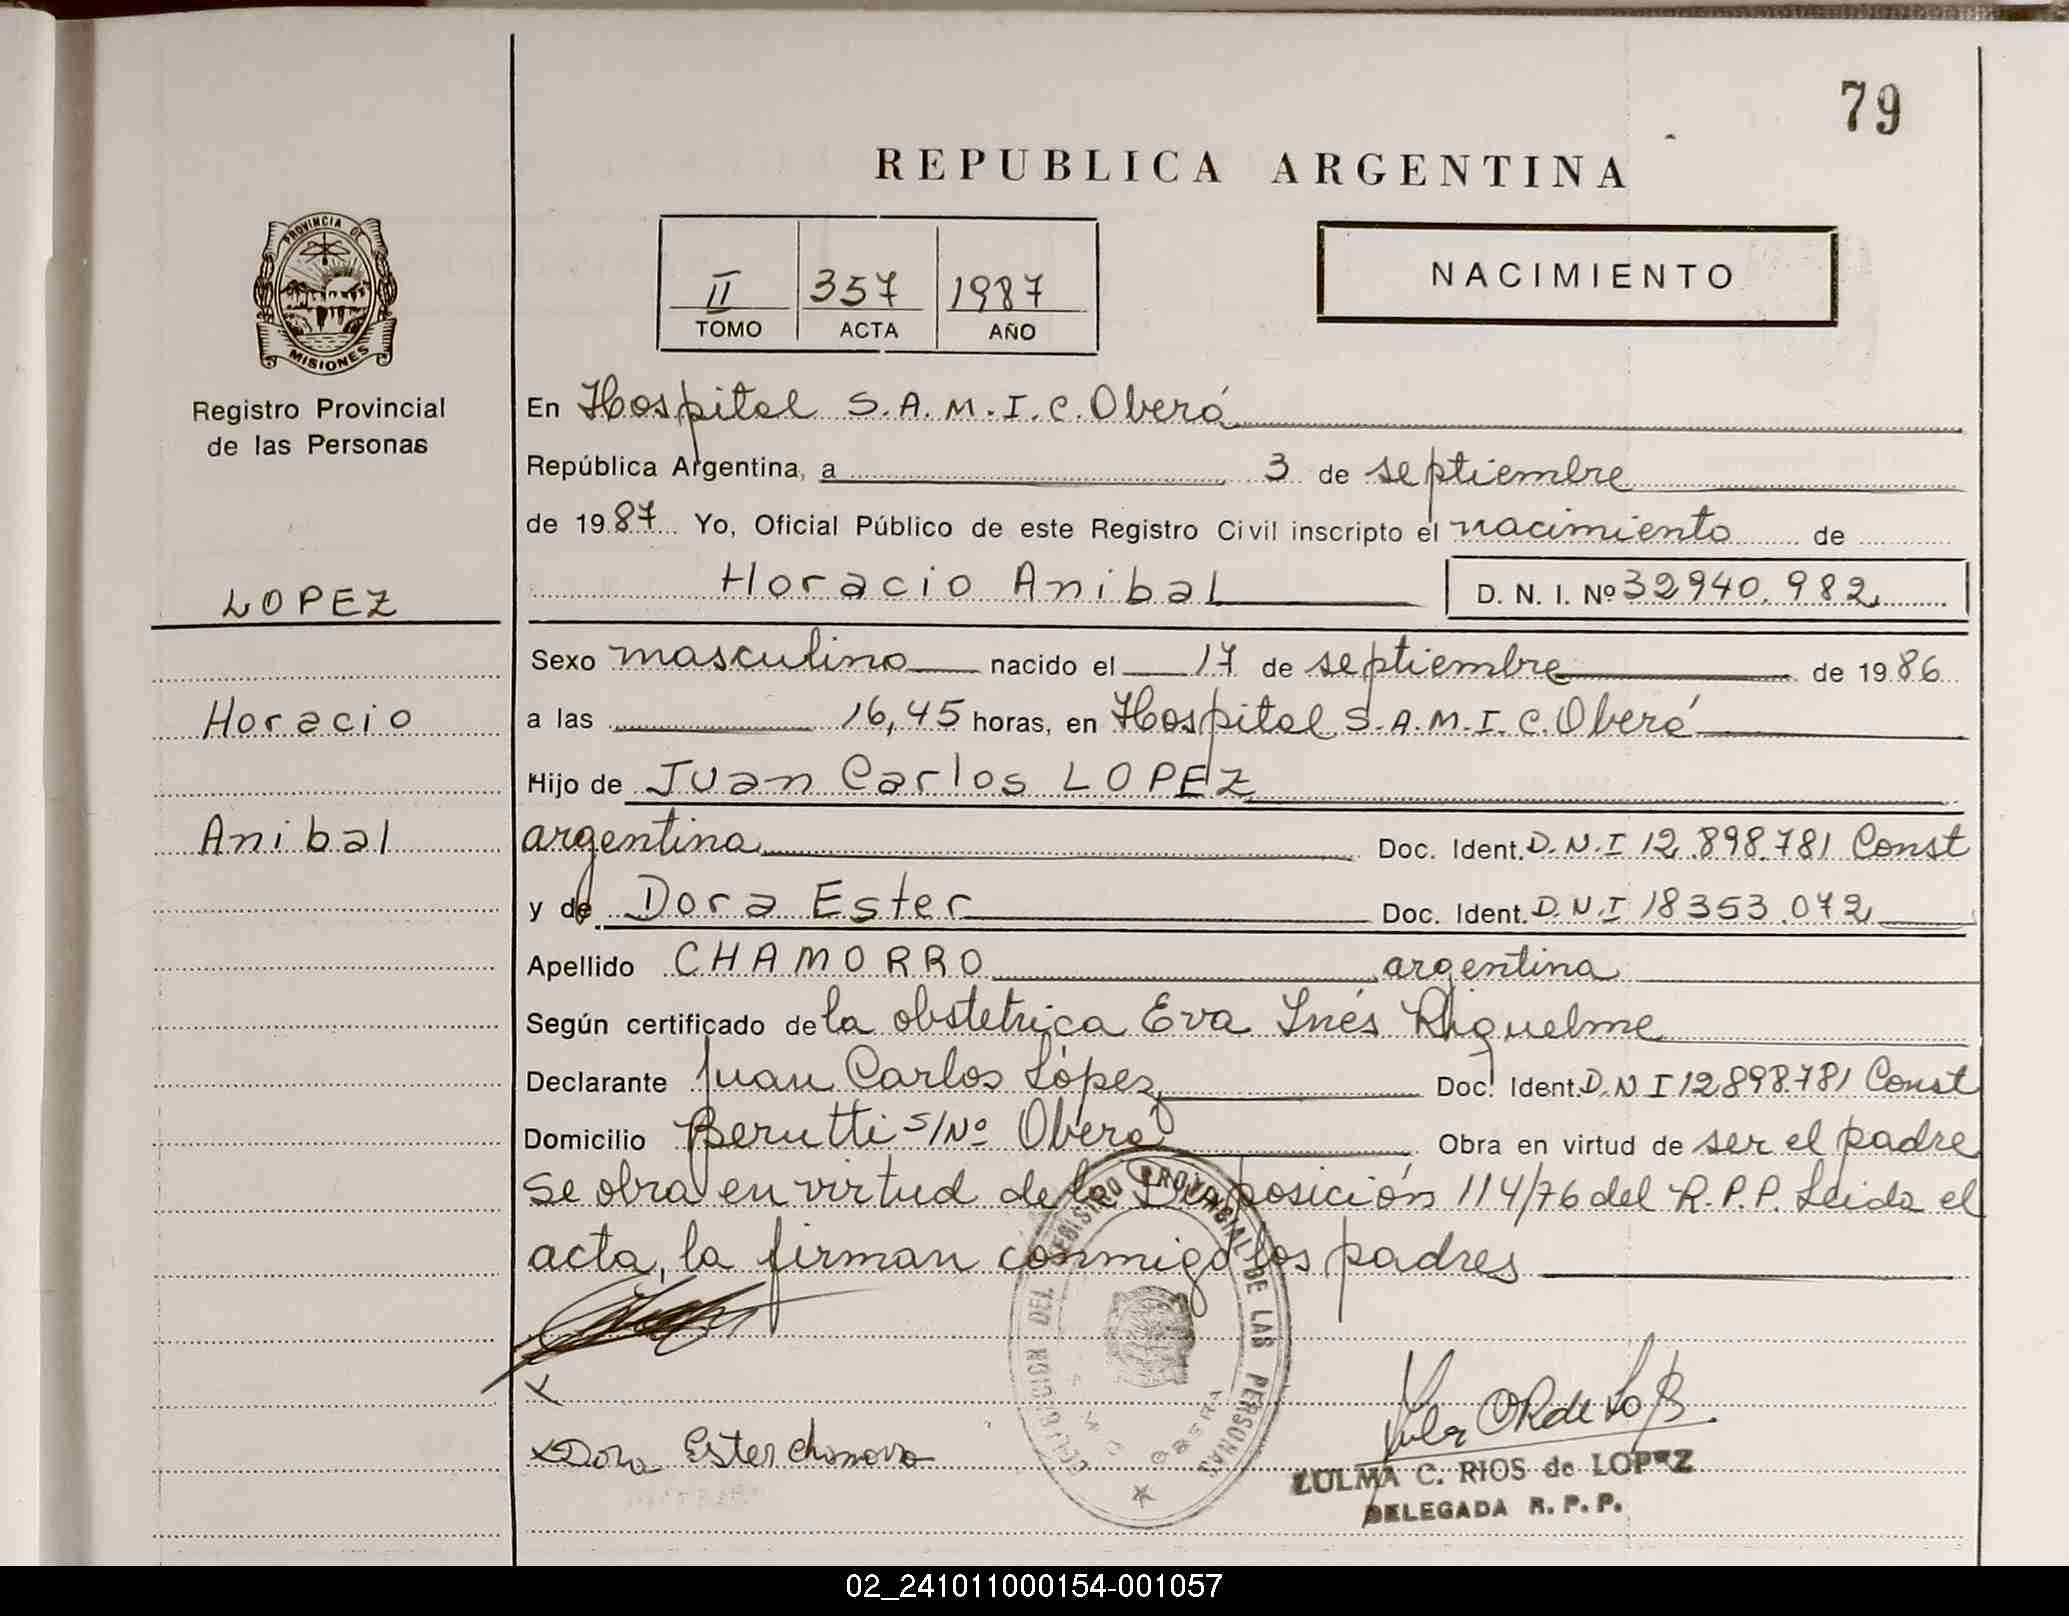 79
REPUBLICA ARGENTINA
PROVINCIA DE
MISIONES
Registro Provincial
de las Personas
II 357 1987
TOMO ACTA AÑO
NACIMIENTO
En Hospital S.A.M.I.C. Oberá
República Argentina, a 3 de septiembre
de 1987 Yo, Oficial Público de este Registro Civil inscripto el nacimiento de
Horacio Anibal D. N. I. Nº 32940.982
LOPEZ
Horacio
Anibal
Sexo masculino nacido el 17 de septiembre de 1986
a las 16,45 horas, en Hospital S.A.M.I.C. Oberá
Hijo de Juan Carlos LOPEZ
argentina Doc. Ident. D.N.I 12.898.781 Const
y de Dora Ester Doc. Ident. D.N.I 18353.072
Apellido CHAMORRO argentina
Según certificado de la obstetrica Eva Inés Riquelme
Declarante Juan Carlos López Doc. Ident. D.N.I 12898.781 Const
Domicilio Berutti s/Nº Oberá Obra en virtud de ser el padre
se obra en virtud de la Disposición 114/76 del R.P.P. Leida el
acta, la firman conmigo los padres
DELEGACION DEL REGISTRO PROVINCIAL DE LAS PERSONAS
OBERA
x
x Dora Ester Chamorro
ZULMA C. RIOS de LOPEZ
DELEGADA R. P. P.
02_241011000154-001057